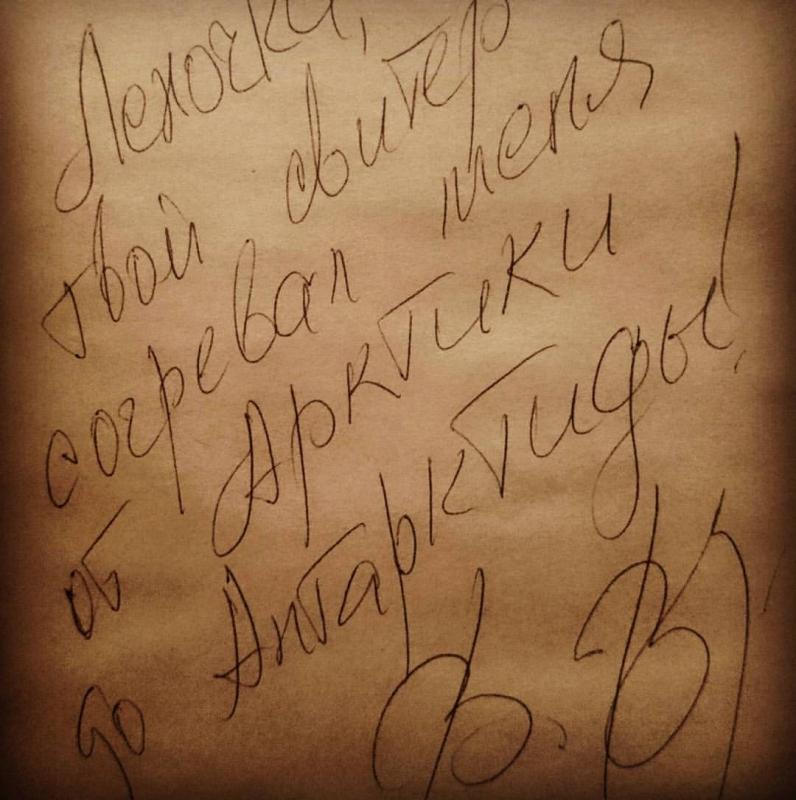 Леночка,
твой свитер
согревал меня
от Арктики
до Антарктиды!